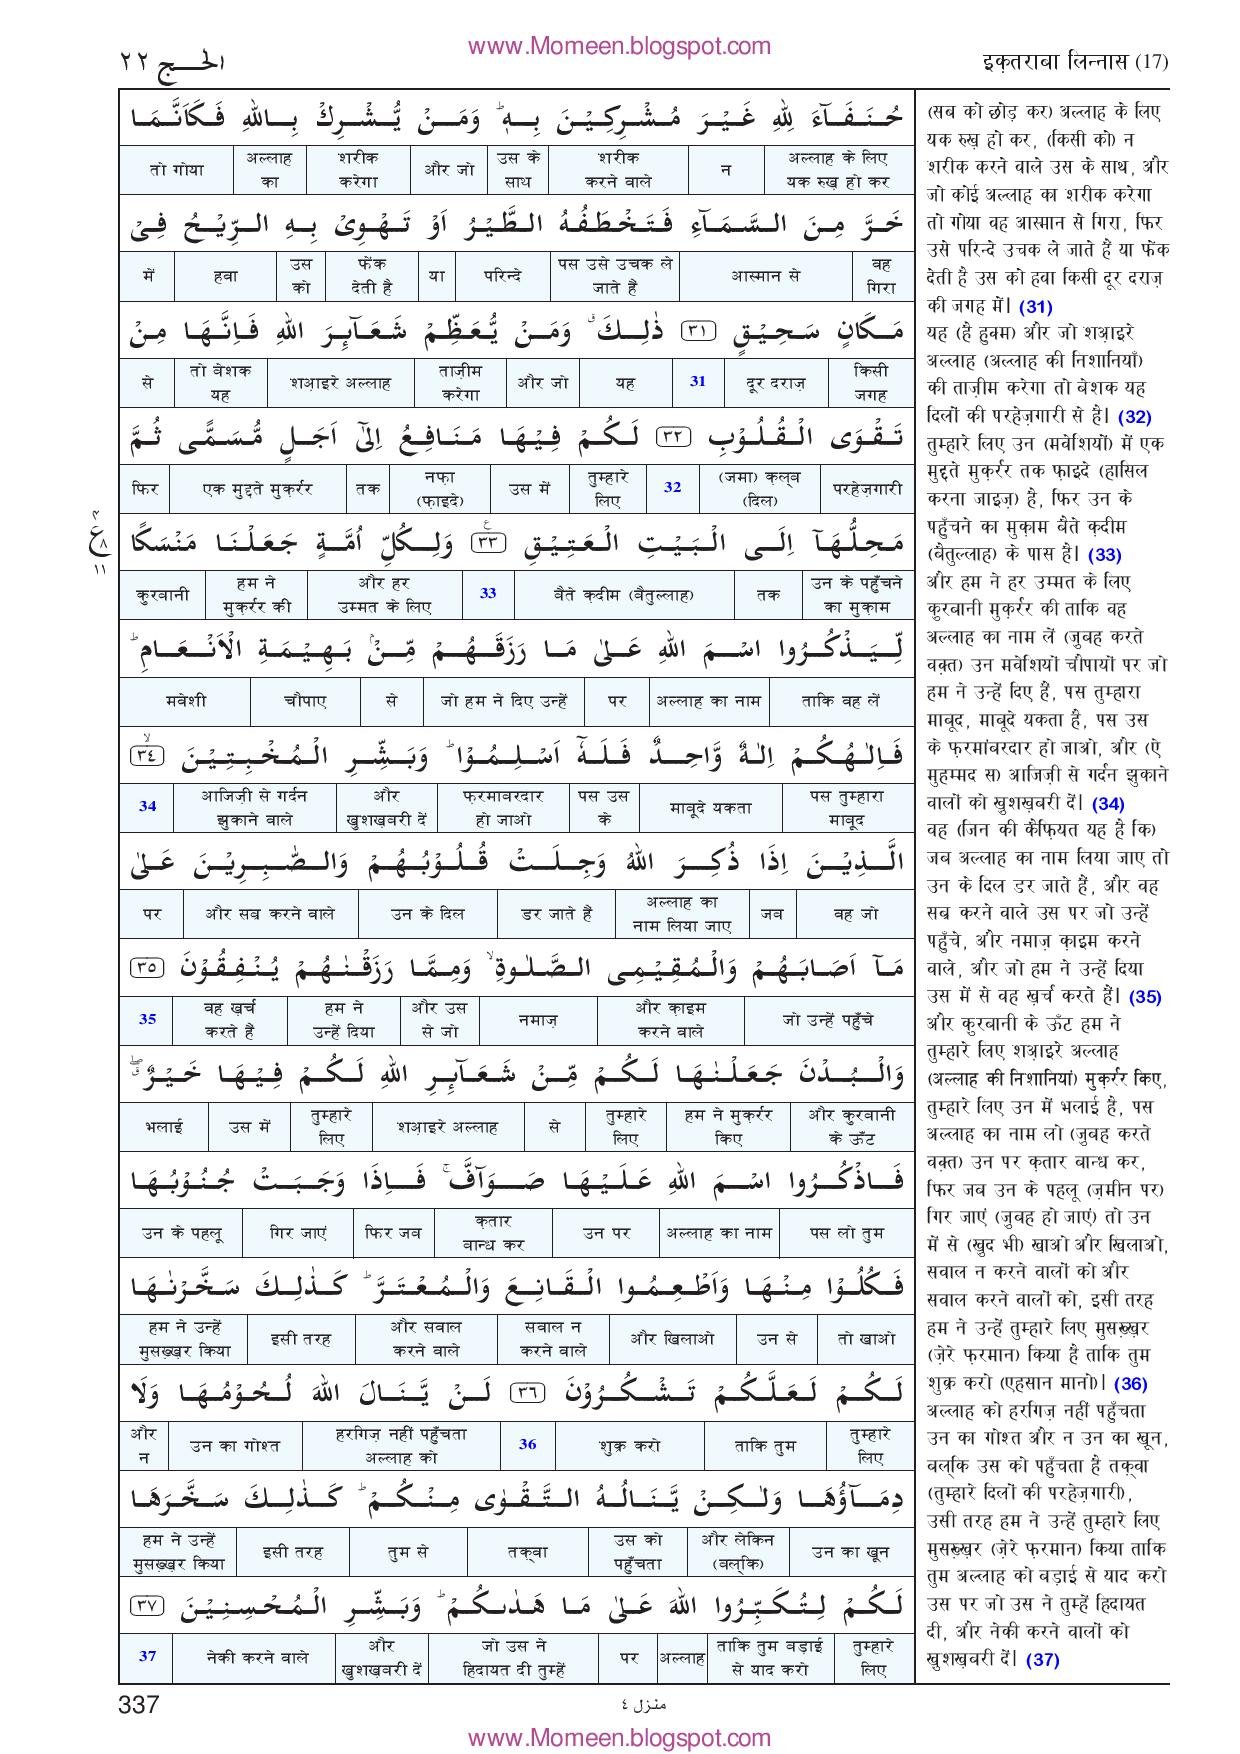 www.Momeen.blogspot.com
الحـج ٢٢
इक़तराबा लिन्नास (17)
حُنَفَآءَ لِلّٰهِ غَيْرَ مُشْرِكِيْنَ بِهٖ ؕ وَمَنْ يُّشْرِكْ بِاللّٰهِ فَكَاَنَّمَا
अल्लाह के लिए यक रुख़ हो कर | न | शरीक करने वाले | उस के साथ | और जो | शरीक करेगा | अल्लाह का | तो गोया
خَرَّ مِنَ السَّمَآءِ فَتَخْطَفُهُ الطَّيْرُ اَوْ تَهْوِىْ بِهِ الرِّيْحُ فِىْ
वह गिरा | आस्मान से | पस उसे उचक ले जाते हैं | परिन्दे | या | फेंक देती है | उस को | हवा | में
مَكَانٍ سَحِيْقٍ ٣١ ذٰلِكَ ۗ وَمَنْ يُّعَظِّمْ شَعَآئِرَ اللّٰهِ فَاِنَّهَا مِنْ
किसी जगह | दूर दराज़ | 31 | यह | और जो | ताज़ीम करेगा | शआ़इरे अल्लाह | तो बेशक यह | से
تَقْوَى الْقُلُوْبِ ٣٢ لَكُمْ فِيْهَا مَنَافِعُ اِلٰٓى اَجَلٍ مُّسَمًّى ثُمَّ
परहेज़गारी | (जमा) क़ल्ब (दिल) | 32 | तुम्हारे लिए | उस में | नफ़ा (फ़ाइदे) | तक | एक मुद्दते मुक़र्रर | फिर
مَحِلُّهَآ اِلَى الْبَيْتِ الْعَتِيْقِ ٣٣ وَلِكُلِّ اُمَّةٍ جَعَلْنَا مَنْسَكًا
٤ ع ٨ ١١
उन के पहुँचने का मुक़ाम | तक | बैते क़दीम (बैतुल्लाह) | 33 | और हर उम्मत के लिए | हम ने मुक़र्रर की | कुरबानी
لِّيَذْكُرُوا اسْمَ اللّٰهِ عَلٰى مَا رَزَقَهُمْ مِّنْۢ بَهِيْمَةِ الْاَنْعَامِ ؕ
ताकि वह लें | अल्लाह का नाम | पर | जो हम ने दिए उन्हें | से | चौपाए | मवेशी
فَاِلٰهُكُمْ اِلٰهٌ وَّاحِدٌ فَلَهٗٓ اَسْلِمُوْا ؕ وَبَشِّرِ الْمُخْبِتِيْنَ ٣٤
पस तुम्हारा माबूद | माबूदे यकता | पस उस के | फ़रमाबरदार हो जाओ | और खुशख़बरी दें | आजिज़ी से गर्दन झुकाने वाले | 34
الَّذِيْنَ اِذَا ذُكِرَ اللّٰهُ وَجِلَتْ قُلُوْبُهُمْ وَالصّٰبِرِيْنَ عَلٰى
वह जो | जब | अल्लाह का नाम लिया जाए | डर जाते हैं | उन के दिल | और सब करने वाले | पर
مَآ اَصَابَهُمْ وَالْمُقِيْمِى الصَّلٰوةِ ۙ وَمِمَّا رَزَقْنٰهُمْ يُنْفِقُوْنَ ٣٥
जो उन्हें पहुँचे | और क़ाइम करने वाले | नमाज़ | और उस से जो | हम ने उन्हें दिया | वह ख़र्च करते हैं | 35
وَالْبُدْنَ جَعَلْنٰهَا لَكُمْ مِّنْ شَعَآئِرِ اللّٰهِ لَكُمْ فِيْهَا خَيْرٌ
और कुरबानी के ऊँट | हम ने मुक़र्रर किए | तुम्हारे लिए | से | शआ़इरे अल्लाह | तुम्हारे लिए | उस में | भलाई
فَاذْكُرُوا اسْمَ اللّٰهِ عَلَيْهَا صَوَآفَّ ۚ فَاِذَا وَجَبَتْ جُنُوْبُهَا
पस लो तुम | अल्लाह का नाम | उन पर | क़तार बान्ध कर | फिर जब | गिर जाएं | उन के पहलू
فَكُلُوْا مِنْهَا وَاَطْعِمُوا الْقَانِعَ وَالْمُعْتَرَّ ؕ كَذٰلِكَ سَخَّرْنٰهَا
तो खाओ | उन से | और खिलाओ | सवाल न करने वाले | और सवाल करने वाले | इसी तरह | हम ने उन्हें मुसख़्ख़र किया
لَكُمْ لَعَلَّكُمْ تَشْكُرُوْنَ ٣٦ لَنْ يَّنَالَ اللّٰهَ لُحُوْمُهَا وَلَا
तुम्हारे लिए | ताकि तुम | शुक्र करो | 36 | हरगिज़ नहीं पहुँचता अल्लाह को | उन का गोश्त | और न
دِمَآؤُهَا وَلٰكِنْ يَّنَالُهُ التَّقْوٰى مِنْكُمْ ؕ كَذٰلِكَ سَخَّرَهَا
उन का खून | और लेकिन (बल्कि) | उस को पहुँचता | तक़्वा | तुम से | इसी तरह | हम ने उन्हें मुसख़्ख़र किया
لَكُمْ لِتُكَبِّرُوا اللّٰهَ عَلٰى مَا هَدٰىكُمْ ؕ وَبَشِّرِ الْمُحْسِنِيْنَ ٣٧
तुम्हारे लिए | ताकि तुम बड़ाई से याद करो | अल्लाह | पर | जो उस ने हिदायत दी तुम्हें | और खुशख़बरी दें | नेकी करने वाले | 37
(सब को छोड़ कर) अल्लाह के लिए
यक रुख़ हो कर, (किसी को) न
शरीक करने वाले उस के साथ, और
जो कोई अल्लाह का शरीक करेगा
तो गोया वह आस्मान से गिरा, फिर
उसे परिन्दे उचक ले जाते हैं या फेंक
देती है उस को हवा किसी दूर दराज़
की जगह में। (31)
यह (है हुक्म) और जो शआ़इरे
अल्लाह (अल्लाह की निशानियाँ)
की ताज़ीम करेगा तो बेशक यह
दिलों की परहेज़गारी से है। (32)
तुम्हारे लिए उन (मवेशियों) में एक
मुद्दते मुक़र्रर तक फ़ाइदे (हासिल
करना जाइज़) है, फिर उन के
पहुँचने का मुक़ाम बैते क़दीम
(बैतुल्लाह) के पास है। (33)
और हम ने हर उम्मत के लिए
कुरबानी मुक़र्रर की ताकि वह
अल्लाह का नाम लें (जुबह करते
वक़्त) उन मवेशियों चौपायों पर जो
हम ने उन्हें दिए हैं, पस तुम्हारा
माबूद, माबूदे यकता है, पस उस
के फ़रमांबरदार हो जाओ, और (ऐ
मुहम्मद स) आजिज़ी से गर्दन झुकाने
वालों को खुशख़बरी दें। (34)
वह (जिन की कैफ़ियत यह है कि)
जब अल्लाह का नाम लिया जाए तो
उन के दिल डर जाते हैं, और वह
सब करने वाले उस पर जो उन्हें
पहुँचे, और नमाज़ क़ाइम करने
वाले, और जो हम ने उन्हें दिया
उस में से वह ख़र्च करते हैं। (35)
और कुरबानी के ऊँट हम ने
तुम्हारे लिए शआ़इरे अल्लाह
(अल्लाह की निशानियां) मुक़र्रर किए,
तुम्हारे लिए उन में भलाई है, पस
अल्लाह का नाम लो (जुबह करते
वक़्त) उन पर क़तार बान्ध कर,
फिर जब उन के पहलू (ज़मीन पर)
गिर जाएं (जुबह हो जाएं) तो उन
में से (खुद भी) खाओ और खिलाओ,
सवाल न करने वालों को और
सवाल करने वालों को, इसी तरह
हम ने उन्हें तुम्हारे लिए मुसख़्ख़र
(ज़ेरे फ़रमान) किया है ताकि तुम
शुक्र करो (एहसान मानो)। (36)
अल्लाह को हरगिज़ नहीं पहुँचता
उन का गोश्त और न उन का खून,
बल्कि उस को पहुँचता है तक़्वा
(तुम्हारे दिलों की परहेज़गारी),
उसी तरह हम ने उन्हें तुम्हारे लिए
मुसख़्ख़र (ज़ेरे फ़रमान) किया ताकि
तुम अल्लाह को बड़ाई से याद करो
उस पर जो उस ने तुम्हें हिदायत
दी, और नेकी करने वालों को
खुशख़बरी दें। (37)
337
منزل ٤
www.Momeen.blogspot.com